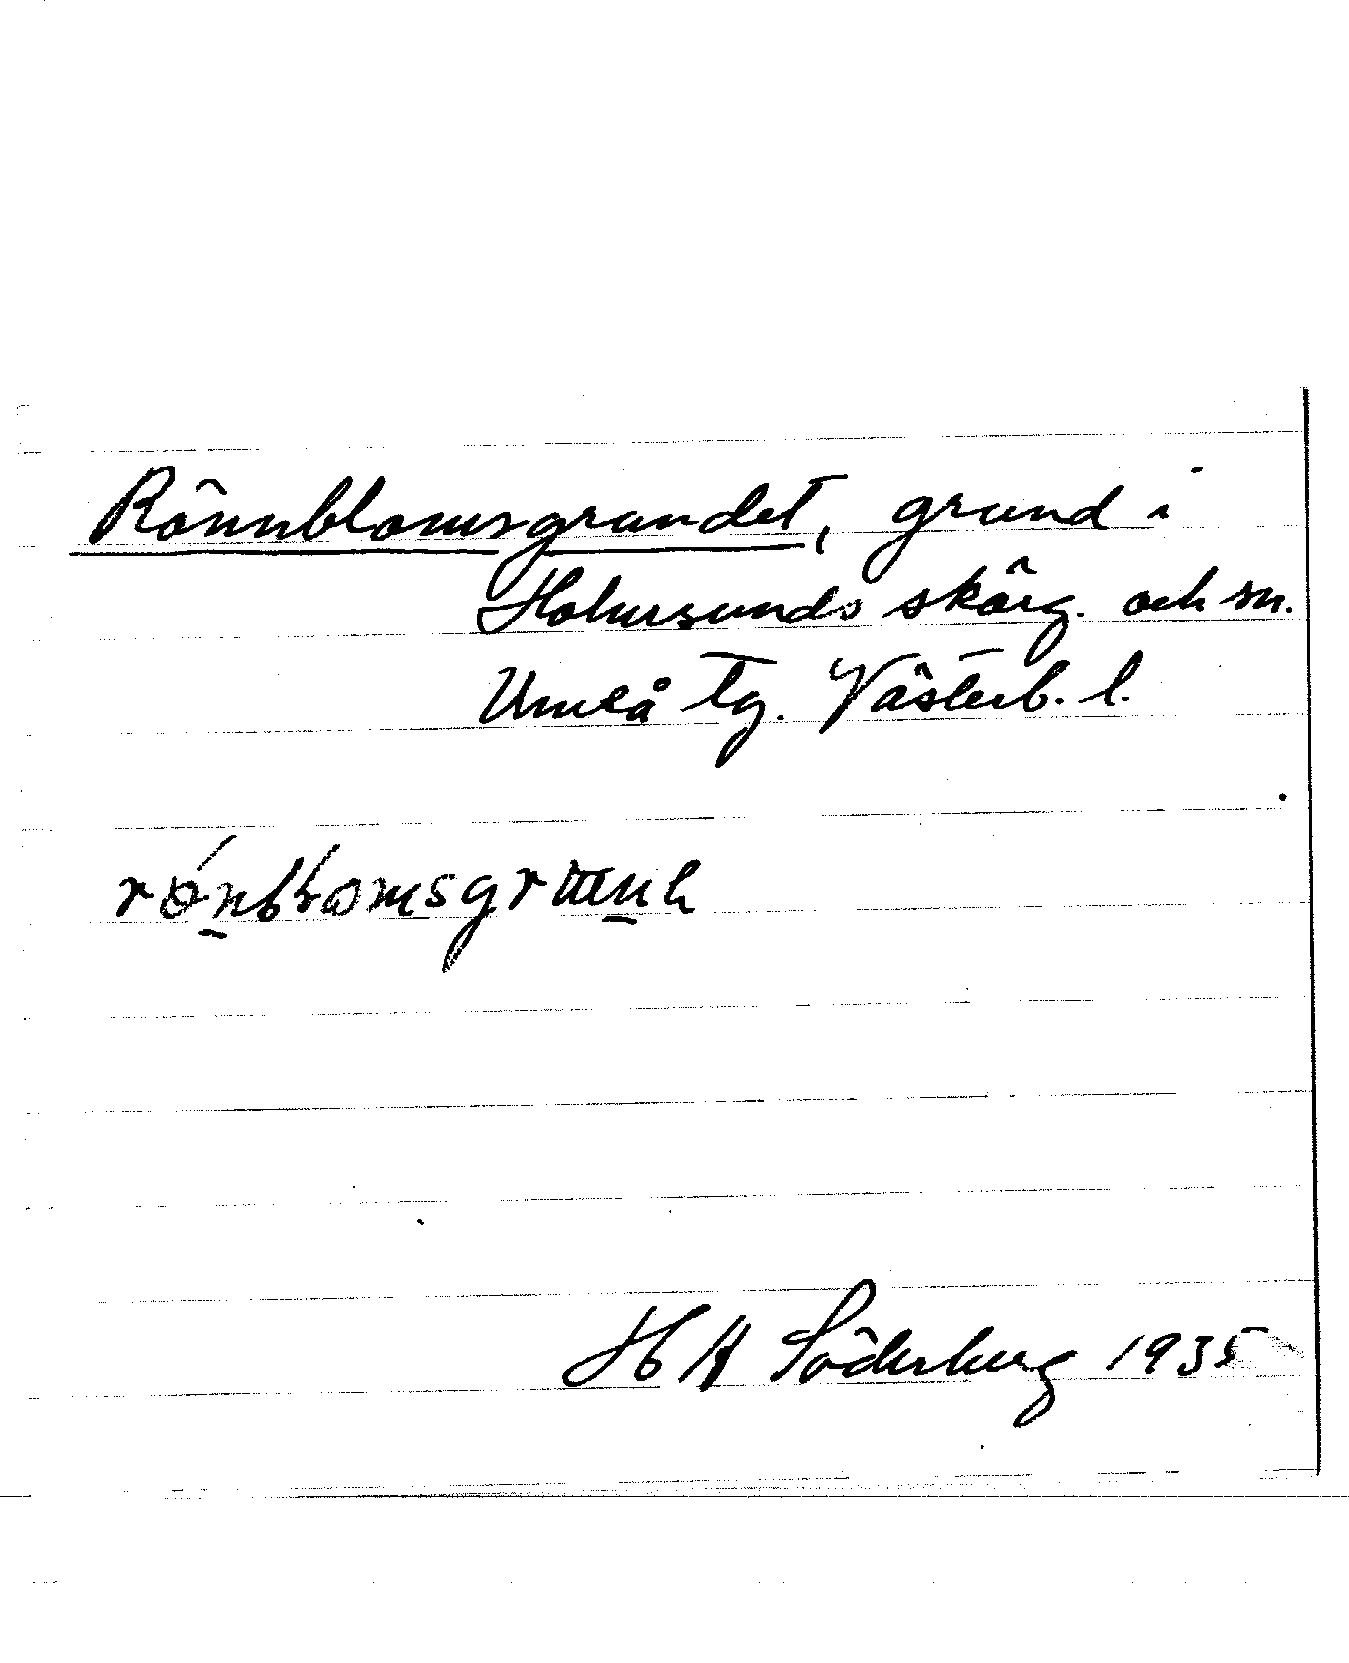 Rönnblomsgrundet, grund i
Holmsunds skärg. och sn.
Umeå Tg. Västerb. l.
H A Söderberg 1935